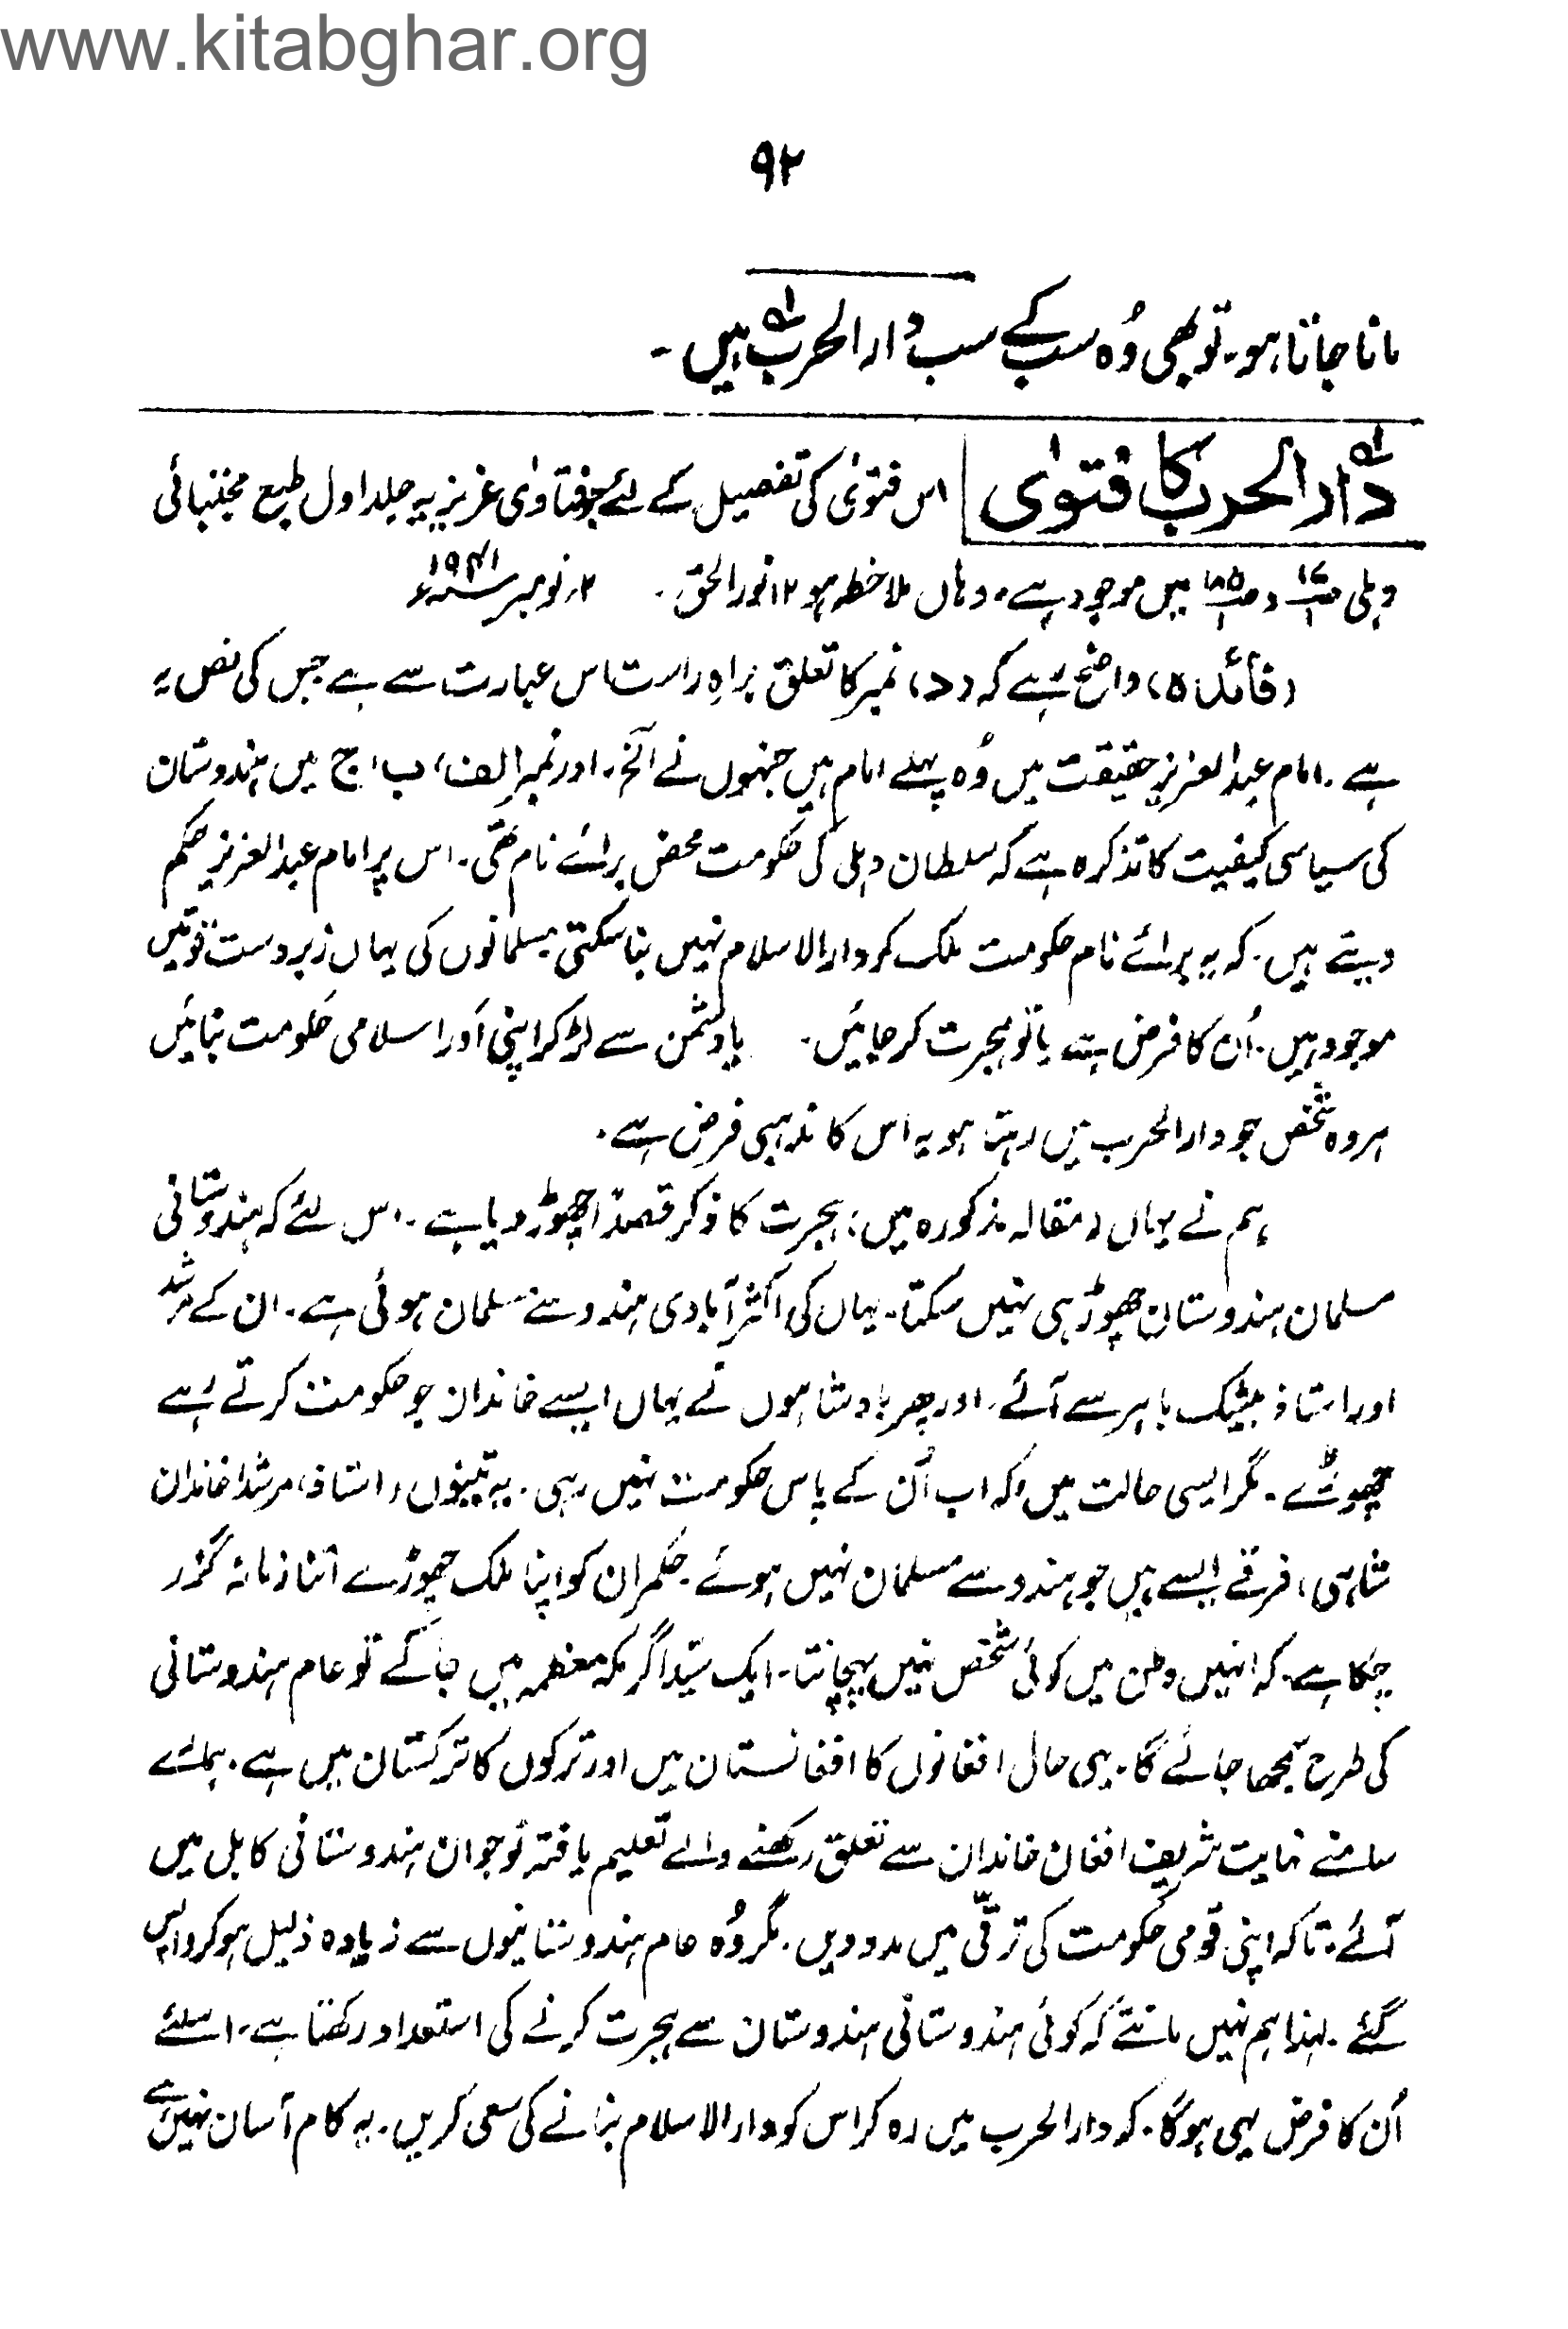 www.kitabghar.org
۹۲
مانا جاتا ہو۔ تو بھی وُہ سب کے سب دارالحرب ہیں۔
دارالحرب کا فتویٰ اس فتویٰ کی تفصیل کے لئے جو فتاویٰ عزیزیہ جلد اول طبع مجتبائی
دہلی ص۱۶ و ص۱۸۵ میں موجود ہے۔ وہاں ملاحظہ ہو ۱۲ نورالحق۔ ۲؍نومبر ۱۹۴۱ء
(فائدہ) واضح رہے کہ (د) نمبر کا تعلق براہِ راست اس عبارت سے ہے جس کی نص یہ
ہے۔ امام عبدالعزیز حقیقت میں وُہ پہلے امام ہیں جنہوں نے الخ۔ اور نمبر الف، ب، ج میں ہندوستان
کی سیاسی کیفیت کا تذکرہ ہے کہ سلطان دہلی کی حکومت محض برائے نام تھی۔ اس پر امام عبدالعزیز حکم
دیتے ہیں۔ کہ یہ برائے نام حکومت ملک کو دارالاسلام نہیں بنا سکتی مسلمانوں کی یہاں زبردست قوتیں
موجود ہیں۔ اُن کا فرض ہے یا تو ہجرت کر جائیں۔ یا دشمن سے لڑ کر اپنی اَور اسلامی حکومت بنائیں
ہر وہ شخص جو دارالحرب میں رہتا ہو یہ اس کا مذہبی فرض ہے۔
ہم نے یہاں (مقالہ مذکورہ میں) ہجرت کا ذکر قصداً چھوڑ دیا ہے۔ اس لئے کہ ہندوستانی
مسلمان ہندوستان چھوڑ ہی نہیں سکتا۔ یہاں کی اکثر آبادی ہندو سے مسلمان ہوئی ہے۔ ان کے مرشد
اور استاذ بیشک باہر سے آئے۔ اور پھر بادشاہوں نے یہاں ایسے خاندان جو حکومت کرتے رہے
چھوڑے۔ مگر ایسی حالت میں کہ اب اُن کے پاس حکومت نہیں رہی۔ یہ تینوں (استاذ، مرشد، خاندان
شاہی) فرقے ایسے ہیں جو ہندو سے مسلمان نہیں ہوئے۔ حکمران کو اپنا ملک چھوڑے اتنا زمانہ گزر
چکا ہے۔ کہ انہیں وطن میں کوئی شخص نہیں پہچانتا۔ ایک سیّد اگر مکہ معظمہ میں جا کے تو عام ہندوستانی
کی طرح سمجھا جائے گا۔ یہی حال افغانوں کا افغانستان میں اور ترکوں کا ترکستان میں ہے۔ ہمارے
سامنے نہایت شریف افغان خاندان سے تعلق رکھنے والے تعلیم یافتہ نوجوان ہندوستانی کابل میں
آئے۔ تاکہ اپنی قومی حکومت کی ترقّی میں مدد دیں۔ مگر وُہ عام ہندوستانیوں سے زیادہ ذلیل ہو کر واپس
گئے۔ لہٰذا ہم نہیں مانتے کہ کوئی ہندوستانی ہندوستان سے ہجرت کرنے کی استعداد رکھتا ہے۔ اسلئے
اُن کا فرض یہی ہوگا۔ کہ دارالحرب میں رہ کر اس کو دارالاسلام بنانے کی سعی کریں۔ یہ کام آسان نہیں ہے